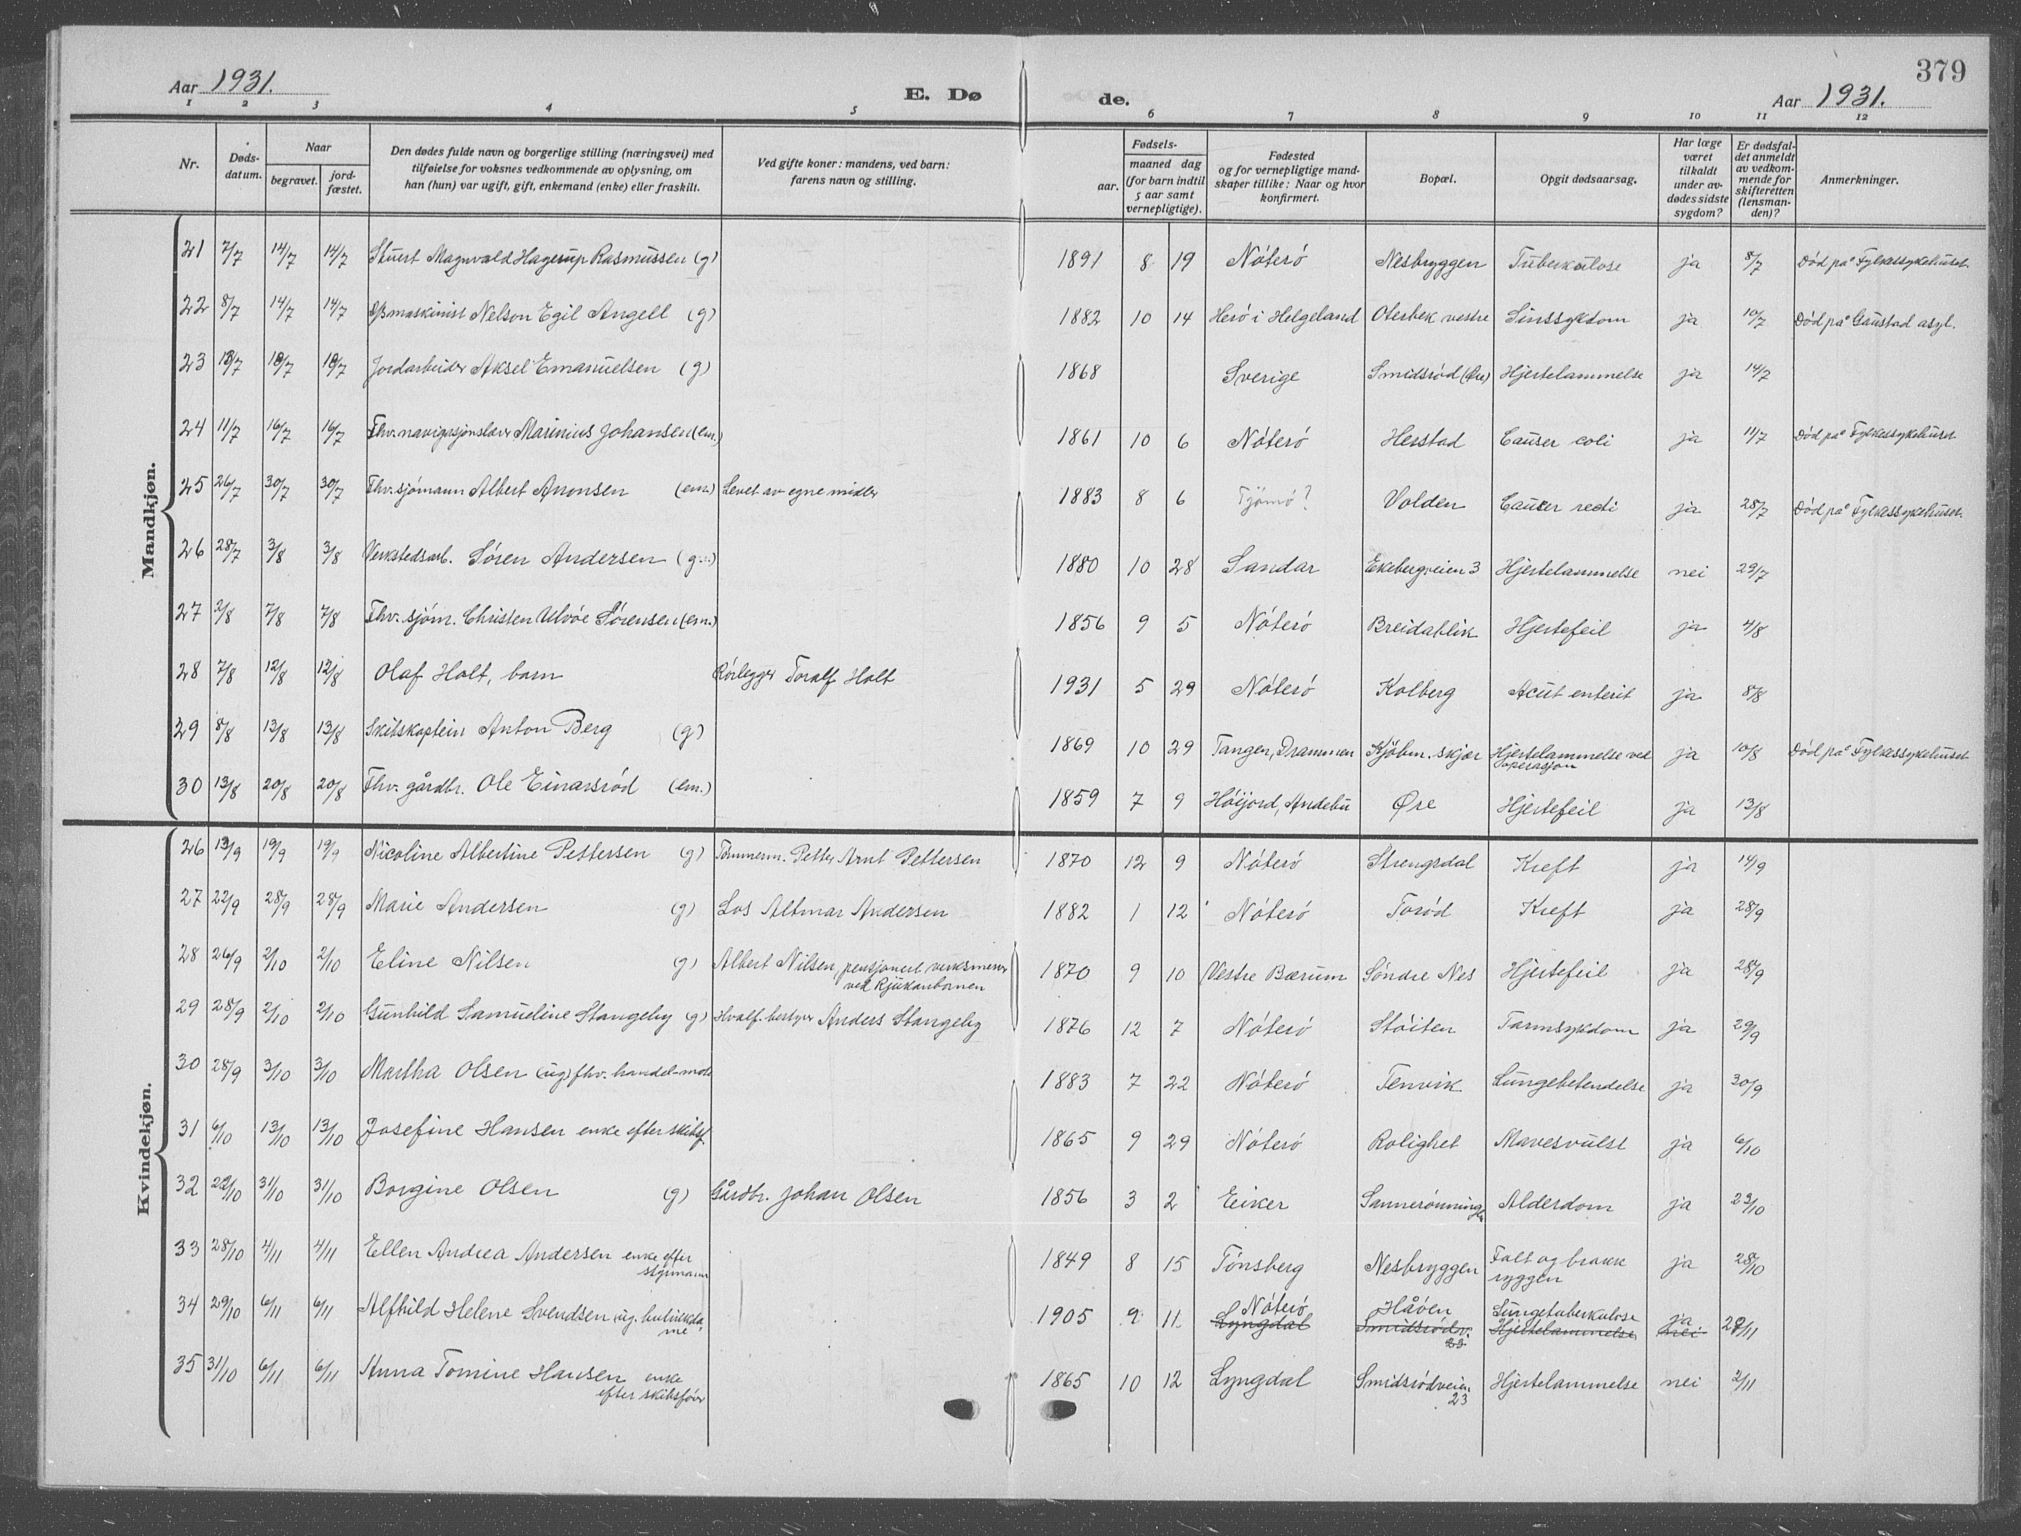 379
Aar 1931.
E. Døde.
Aar 1931.
1 2 3 4 5 6 7 8 9 10 11 12
Nr.
Dødsdatum.
Naar
begravet.
jordfæstet.
Den dødes fulde navn og borgerlige stilling (næringsvei) med
tilføielse for voksnes vedkommende av oplysning, om
han (hun) var ugift, gift, enkemand (enke) eller fraskilt.
Ved gifte koner: mandens, ved barn:
farens navn og stilling.
Fødsels-
aar.
maaned dag
(for barn indtil
5 aar samt
vernepligtige).
Fødested
og for vernepligtige mand-
skaper tillike: Naar og hvor
konfirmert.
Bopæl.
Opgit dødsaarsag.
Har læge
været
tilkaldt
under av-
dødes sidste
sygdom?
Er dødsfal-
det anmeldt
av vedkom-
mende for
skifteretten
(lensman-
den)?
Anmerkninger.
Mandkjøn.
21 7/7 14/7 14/7 Stuert Magnvald Hagerup Rasmussen (g) 1891 8 19 Nøterø Nesbryggen Tuberkulose ja 8/7 Død på Fylkessykehuset
22 8/7 14/7 14/7 maskinist Nelson Egil Angell (g) 1882 10 14 Herø i Helgeland Oterbek vestre Sinssykdom ja 10/7 Død på Gaustad asyl.
23 18/7 19/7 Jordarbeider Aksel Emanuelsen (g) 1868 Sverige Smidsrød (Øre) Hjertelammelse ja 14/7
24 11/7 16/7 16/7 Fhv. navigasjonslærer Marinius Johansen (em.) 1861 10 6 Nøterø Herstad Cancer coli ja 11/7 Død på Fylkessykehuset
25 26/7 30/7 30/7 Fhv. sjømann Albert Aronsen (em.) Levet av egne midler 1883 8 6 Tjømø? Volden Cancer recti ja 28/7 Død på Fylkessykehuset
26 28/7 3/8 3/8 Verkstedsarb. Søren Andersen (g.) 1880 10 28 Sandar Ekebergveien 3 Hjertelammelse nei 29/7
27 2/8 7/8 7/8 Fhv. sjøm. Christen Ulvøe Sørensen (em.) 1856 9 5 Nøterø Breidablik Hjertefeil ja 4/8
28 7/8 12/8 12/8 Olaf Holt, barn Rørlegger Toralf Holt 1931 5 29 Nøterø Kolberg Acut enterit ja 8/8
29 8/8 13/8 13/8 Skibskaptein Anton Berg (g) 1869 10 29 Tangen, Drammen Kjøbm.skjær Hjertelammelse ved
operasjon ja 10/8 Død på Fylkessykehuset
30 13/8 20/8 20/8 Fhv. gårdbr. Ole Einarsrød (em.) 1859 7 9 Høijord, Andebu Øre Hjertefeil ja 13/8
Kvindekjøn.
26 13/9 19/9 19/9 Nicoline Albertine Pettersen (g) Tømmerm. Petter Arnt Pettersen 1870 12 9 Nøterø Strengsdal Kreft ja 14/9
27 22/9 28/9 28/9 Marie Andersen (g) Los Altmar Andersen 1882 1 12 Nøterø Torød Kreft ja 28/9
28 26/9 2/10 2/10 Eline Nilsen (g) Albert Nilsen, pensjonert verksmester
ved Rjukanbanen 1870 9 10 Vestre Bærum Søndre Nes Hjertefeil ja 28/9
29 28/9 2/10 2/10 Gunhild Samueline Stangeby (g) Hvalf. bestyrer Anders Stangeby 1876 12 7 Nøterø Støiten Tarmsykdom ja 29/9
30 28/9 3/10 3/10 Martha Olsen (ug) fhv. handel- 1883 7 22 Nøterø Tenvik Lungebetendelse ja 30/9
31 6/10 13/10 13/10 Josefine Hansen enke efter skibsf. 1865 9 29 Nøterø Rolighet Mavesvulst ja 6/10
32 22/10 31/10 31/10 Borgine Olsen (g) Gårdbr. Johan Olsen 1856 3 2 Eiker Sannerønningen Alderdom ja 23/10
33 28/10 4/11 4/11 Ellen Andrea Andersen enke efter
styrmann 1849 8 15 Tønsberg Nesbryggen Falt og brakk
ryggen ja 28/10
34 29/10 6/11 6/11 Alfhild Helene Svendsen ug. butikkda-
me 1905 9 11 Nøterø Håøen Lungetuberkulose ja
Lyngdal Smidsrødv. 23 Hjertelammelse nei 2/11
35 31/10 6/11 6/11 Anna Tomine Hansen enke
efter skibsfører 1865 10 12 Lyngdal Smidsrødveien
23 Hjertelammelse nei 2/11